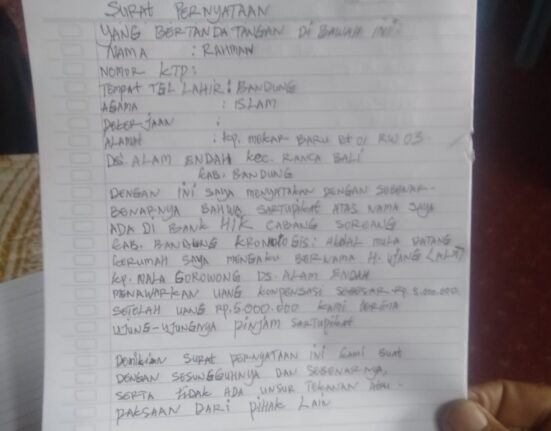 SURAT PERNYATAAN
YANG BERTANDA TANGAN DI BAWAH INI:
NAMA : RAHMAN
NOMOR KTP:
TEMPAT TGL LAHIR : BANDUNG
AGAMA : ISLAM
PEKERJAAN :
ALAMAT : Kp. MEKAR BARU Rt 01 RW 03
DS. ALAM ENDAH Kec. RANCA BALI
KAB. BANDUNG
DENGAN INI SAYA MENYATAKAN DENGAN SEBENAR-
BENARNYA BAHWA SARTUPIKAT ATAS NAMA SAYA
ADA DI BANK HIK CABANG SOREANG
KAB. BANDUNG KRONOLOGIS: MULA DATANG
KERUMAH SAYA MENGAKU BERNAMA H. UJANG
KP. NALA GOROWONG DS. ALAM ENDAH
MENAWARKAN UANG KONPENSASI SEBESAR Rp 5.000.000
SETELAH UANG RP. 5.000.000 KAMI TERIMA
UJUNG-UJUNGNYA PINJAM SARTUPIKAT
DEMIKIAN SURAT PERNYATAAN INI KAMI BUAT
DENGAN SESUNGGUHNYA DAN SEBENARNYA,
SERTA TIDAK ADA UNSUR TEKANAN ATAU
PAKSAAN DARI PIHAK LAIN